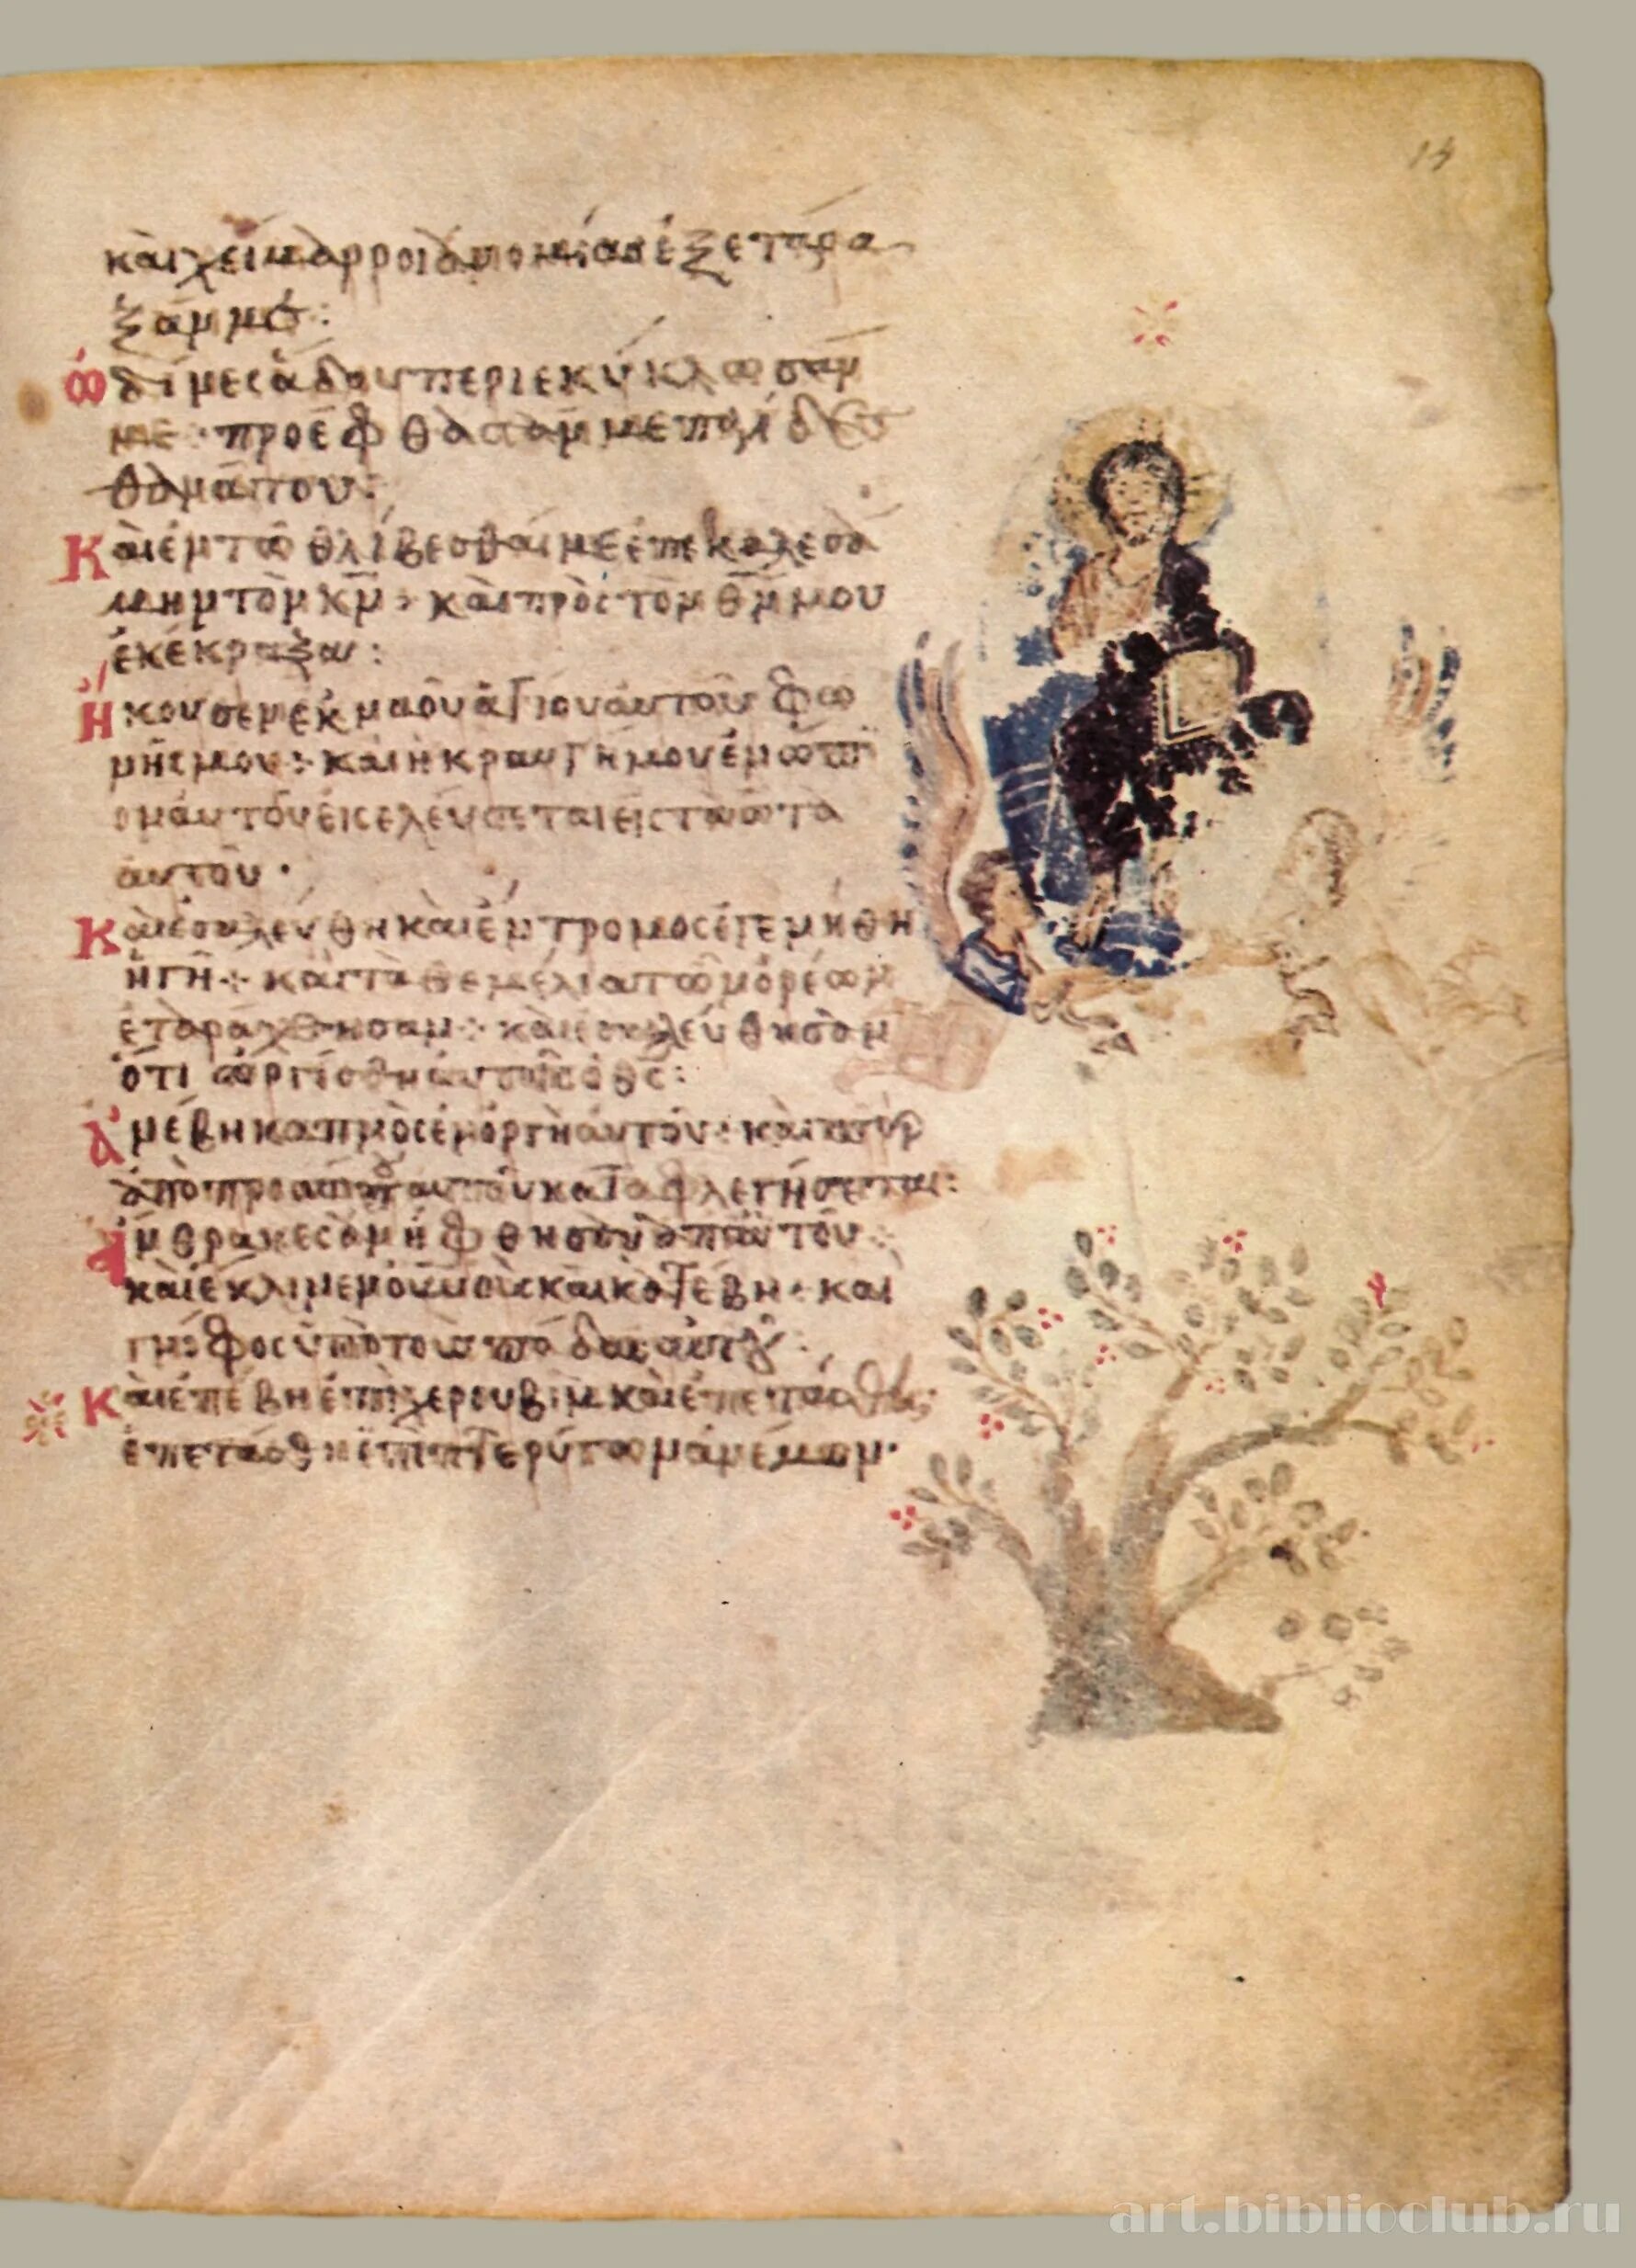 14
καὶ χείμαρροι ἀνομίας ἐξετάρα
ξάν με:
ὠδῖνες ᾅδου περιεκύκλωσάν
με· προέφθασάν με παγίδες
θανάτου:
Καὶ ἐν τῶ θλίβεσθαί με ἐπεκαλεσά
μην τὸν κ̅ν̅· καὶ πρὸς τὸν θ̅ν̅ μου
ἐκέκραξα:
ἤκουσεν ἐκ ναοῦ ἁγίου αὐτοῦ φω
νῆς μου: καὶ ἡ κραυγή μου ἐνώπι
ον αὐτοῦ εἰσελεύσεται εἰς τὰ ὦτα
αὐτοῦ·
Καὶ ἐσαλεύθη καὶ ἔντρομος ἐγενήθη
ἡ γῆ: καὶ τὰ θεμέλια τῶν ὀρέων
ἐταράχθησαν: καὶ ἐσαλεύθησαν
ὅτι ὠργίσθη αὐτοῖς ὁ θ̅ς̅:
Ἀνέβη καπνὸς ἐν ὀργῆ αὐτοῦ: καὶ πῦρ
ἀπὸ προσώπου αὐτοῦ καταφλεγήσεται:
ἄνθρακες ἀνήφθησαν ἀπ' αὐτοῦ:
καὶ ἔκλινεν οὐνοὺς καὶ κατέβη· καὶ
γνόφος ὑπὸ τοὺς πόδας αὐτοῦ:
Καὶ ἐπέβη ἐπὶ χερουβὶμ καὶ ἐπετάσθη:
ἐπετάσθη ἐπὶ πτερύγων ἀνέμων·
art.biblioclub.ru